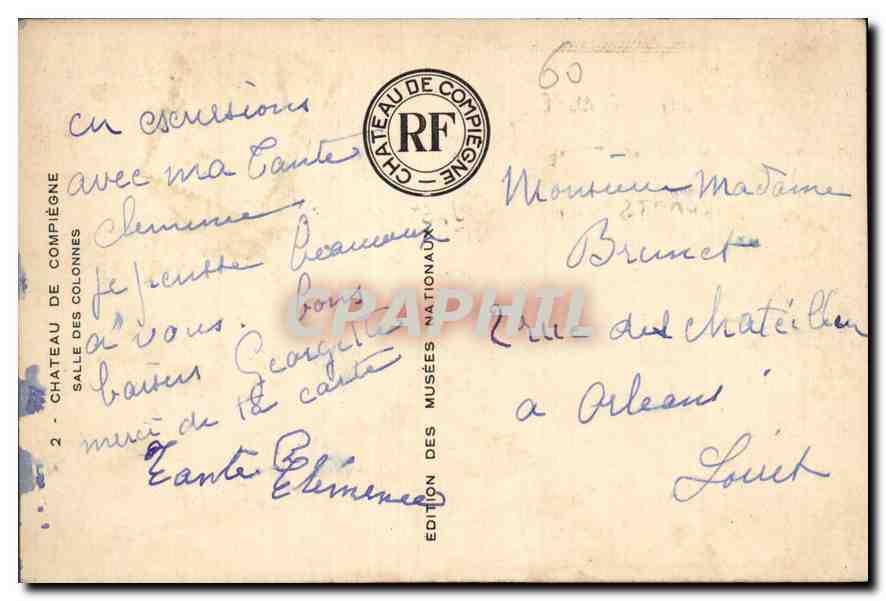 2 - CHATEAU DE COMPIÈGNE
SALLE DES COLONNES
en excursions
avec ma Tante
clemence
je pensse beaucoup
a vous. bons
baisers Georgette
merci de la carte
Tante Clémence
CHATEAU DE COMPIEGNE
RF
EDITION DES MUSÉES NATIONAUX
CRAPHIL
60
Monsieur Madame
Brunet
rue des
a Orleans
Loiret